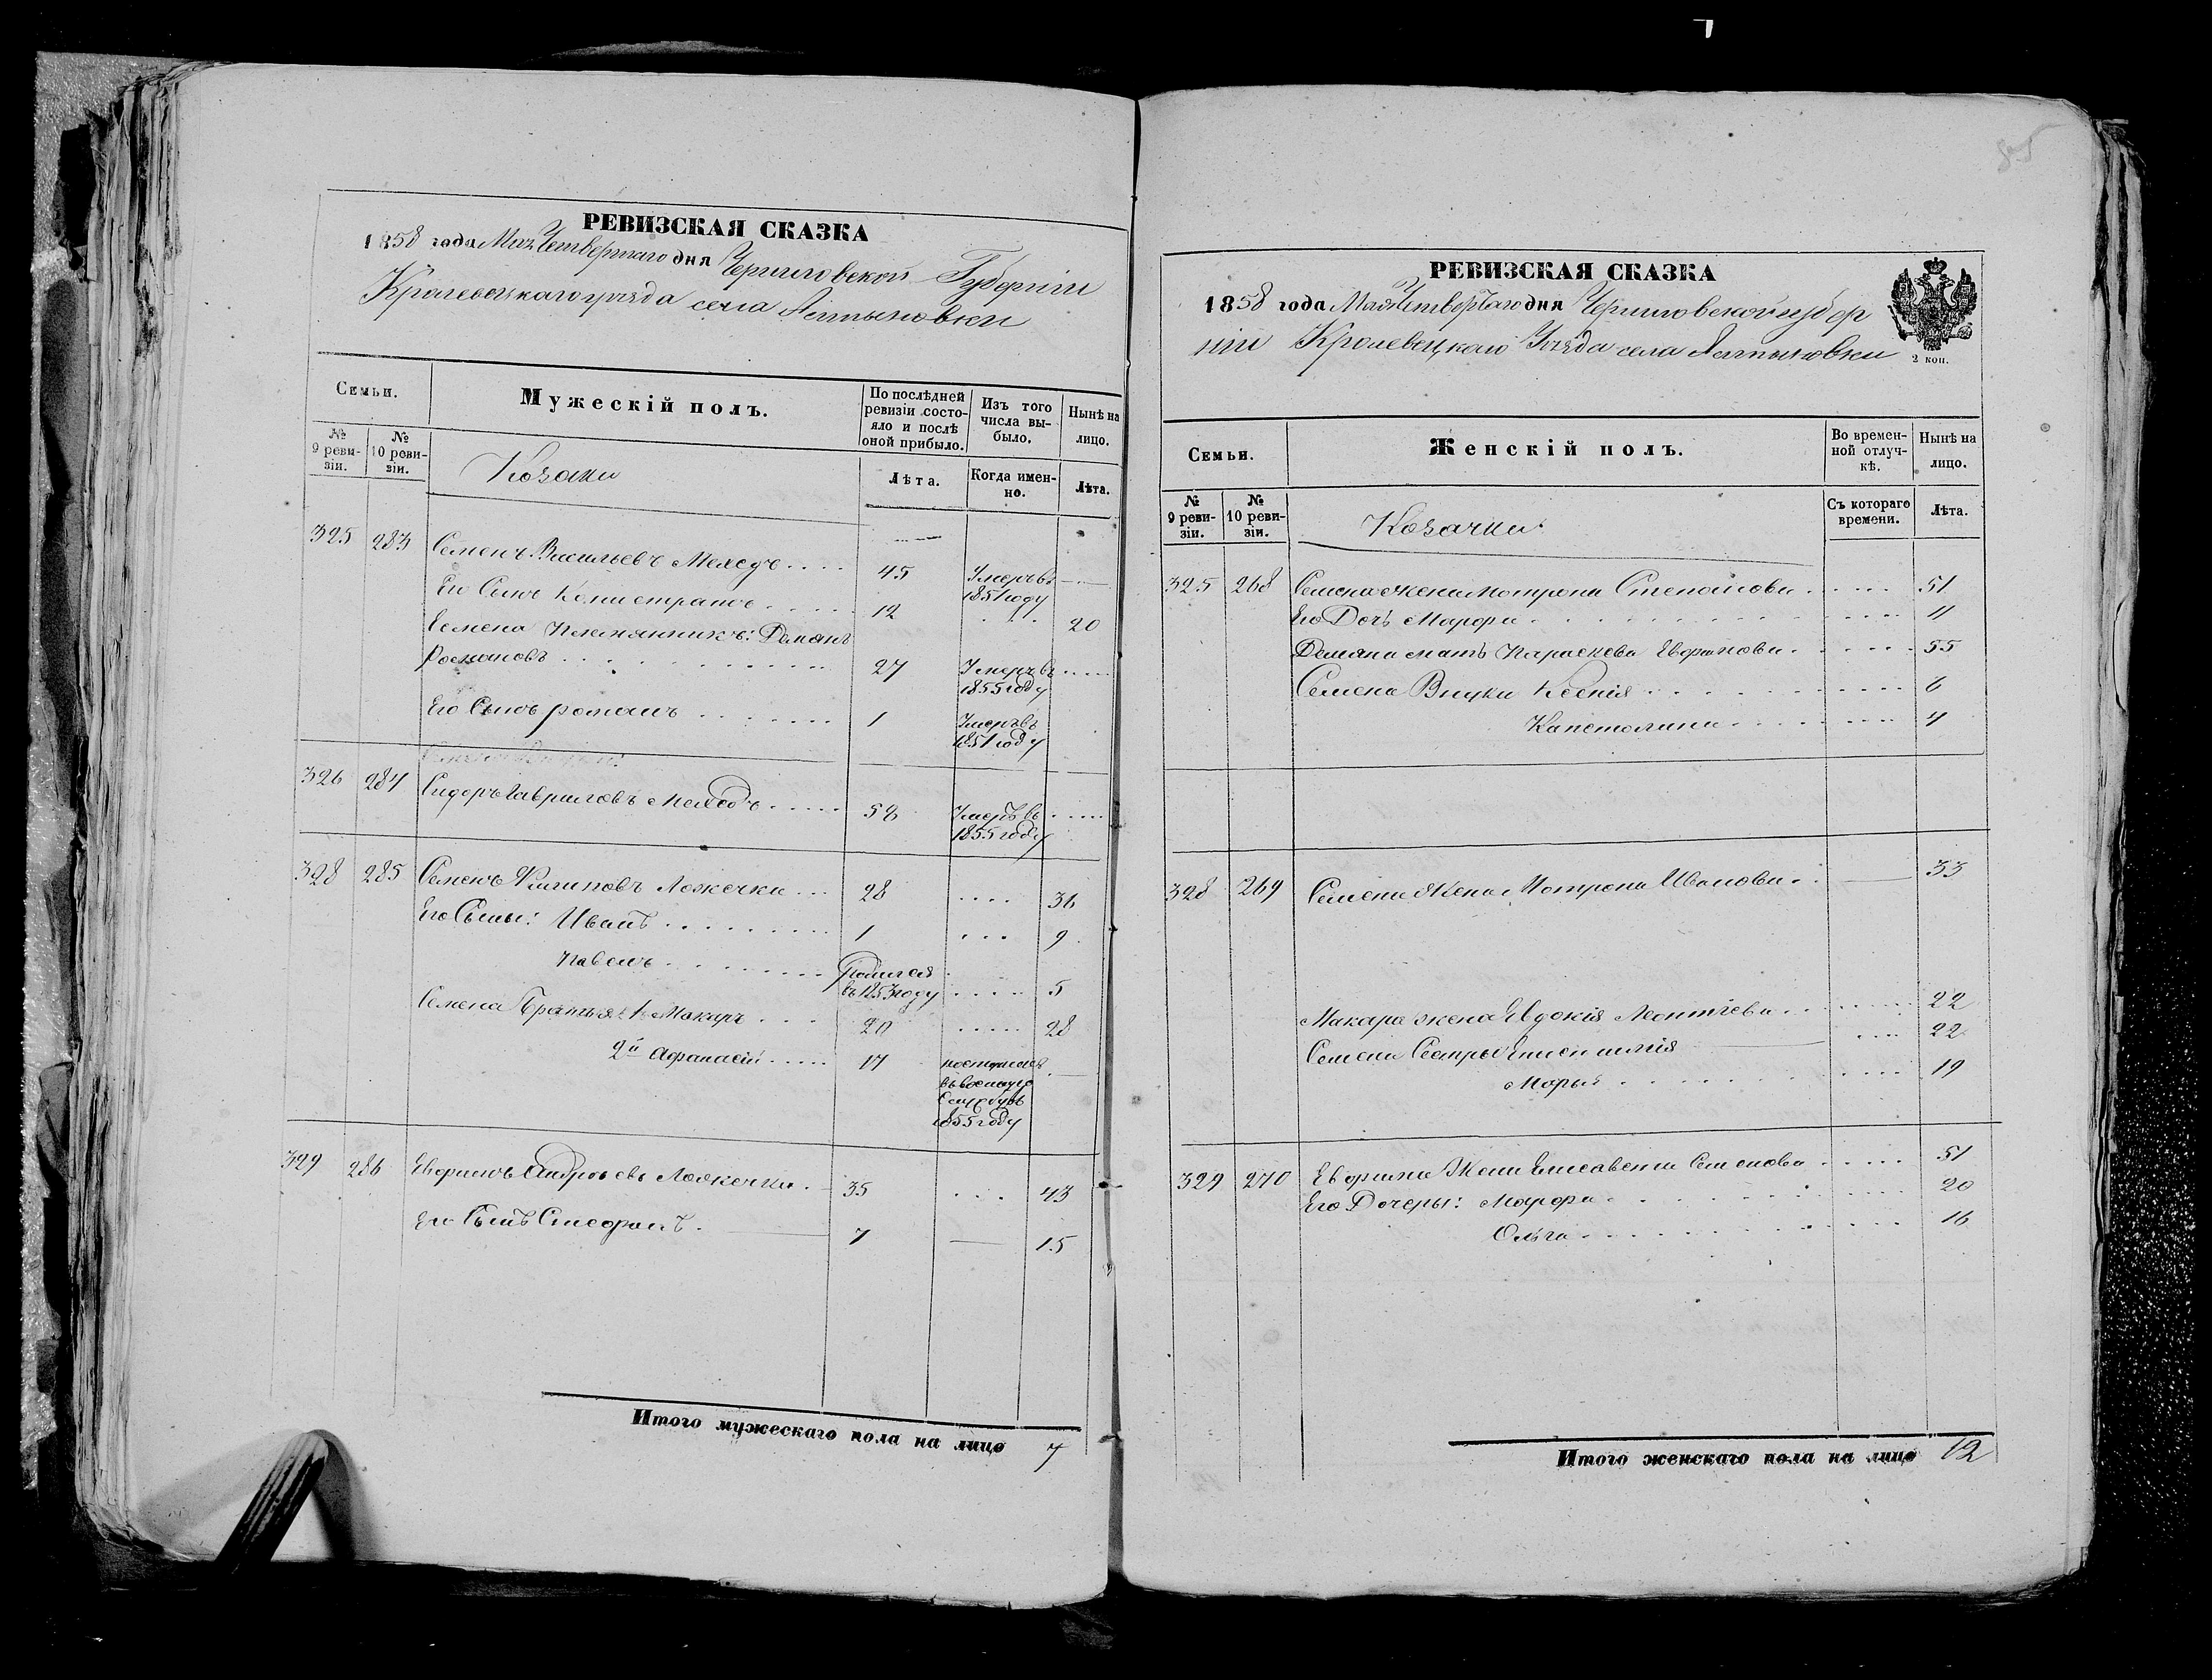 РЕВИЗСКАЯ СКАЗКА
1858 года Мая Четвертаго дня Черниговской Губерніи
Кролевецкаго уѣзда села Алтыновки
Семьи.
Мужескій полъ.
По послѣдней ревизіи состояло и послѣ оной прибыло.
Изъ того числа выбыло.
Нынѣ на лицо.
№ 9 ревизіи.
№ 10 ревизіи.
Козаки
Лѣта.
Когда именно.
Лѣта.
325 283 Семенъ Васильевъ Мелхедъ 45 Умеръ въ 1851 году
Его Сынъ 12 20
Семена племянникъ: Демянъ
Романовъ 27 Умеръ въ 1855 году
Его Сынъ романъ 1 Умеръ въ 1851 году
326 284 Сидоръ Гавриловъ 58 Умеръ въ 1855 году
328 285 Семенъ Филиповъ Ложечка 28 36
Его Сыны: Иванъ 1 9
Павелъ родился въ 1853 году 5
Семена Братья 1 Макаръ 20 28
2й Афанасій 17 поступилъ въ военную службу въ 1855 году
329 286 Евфимъ Андреевъ Ложечка 35 43
Его Сынъ Стефанъ 7 15
Итого мужескаго пола на лицо 7
РЕВИЗСКАЯ СКАЗКА
1858 года Мая Четвертаго дня Черниговской губер
ніи Кролевецкаго Уѣзда села Алтыновки
2 коп.
Семьи.
Женскій полъ.
Во временной отлучкѣ.
Нынѣ на лицо.
№ 9 ревизіи.
№ 10 ревизіи.
Козачки
Съ котораго времени.
Лѣта.
325 268 Семена жена Мотрона Степанова 51
Его Дочь Марфа 11
Демяна мать Параскева Евфимова 55
Семена Внуки Ксенія 6
Капетолина 4
328 269 Семена Жена Мотрона Иванова 33
Макара жена Евдокія Леонтіева 22
Семена Сестры 22
Марья 19
329 270 Евфима Жена Елисавета Семенова 51
Его Дочеры: Марфа 20
Ольга 16
Итого женскаго пола на лицо 12